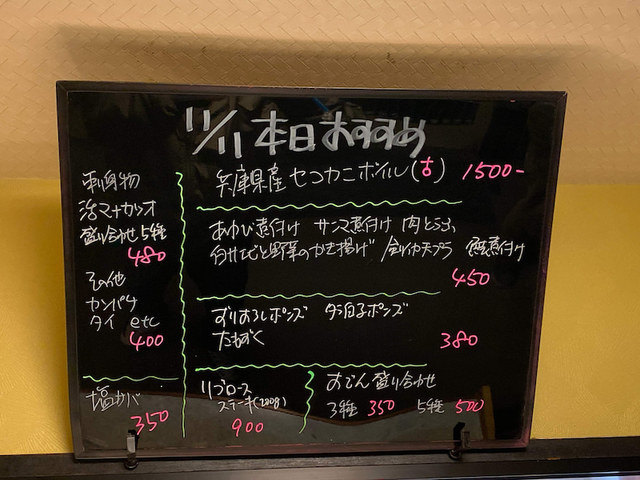 11/11 本日おすすめ
兵庫県産セコカニボイル(古) 1500-
刺身物
活マナガツオ
盛り合わせ5種
480
その他
カンパチ
タイ etc
400
塩サバ
350
あゆひ煮付け サンマ煮付け 肉どうふ
白サエビと野菜のかき揚げ 天プラ 煮付け
450
ずりおろしポンズ タラ白子ポンズ
たもずく
380
リブロース
ステーキ(200g)
900
おでん盛り合わせ
3種 350 5種 500